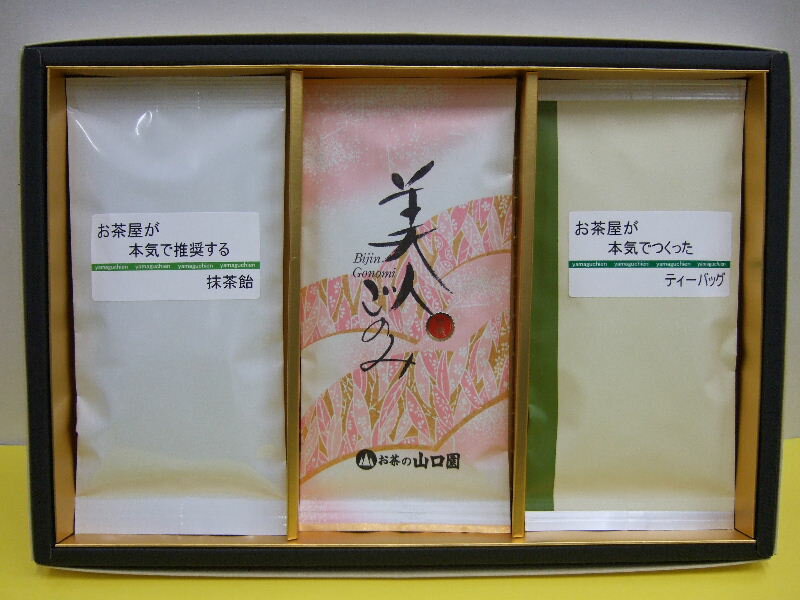 お茶屋が
本気で推奨する
yamaguchien yamaguchien yamaguchien yamaguchien
抹茶飴
美人ごのみ
Bijin
Gonomi
お茶の山口園
お茶屋が
本気でつくった
yamaguchien yamaguchien yamaguchien yamaguchien
ティーバッグ